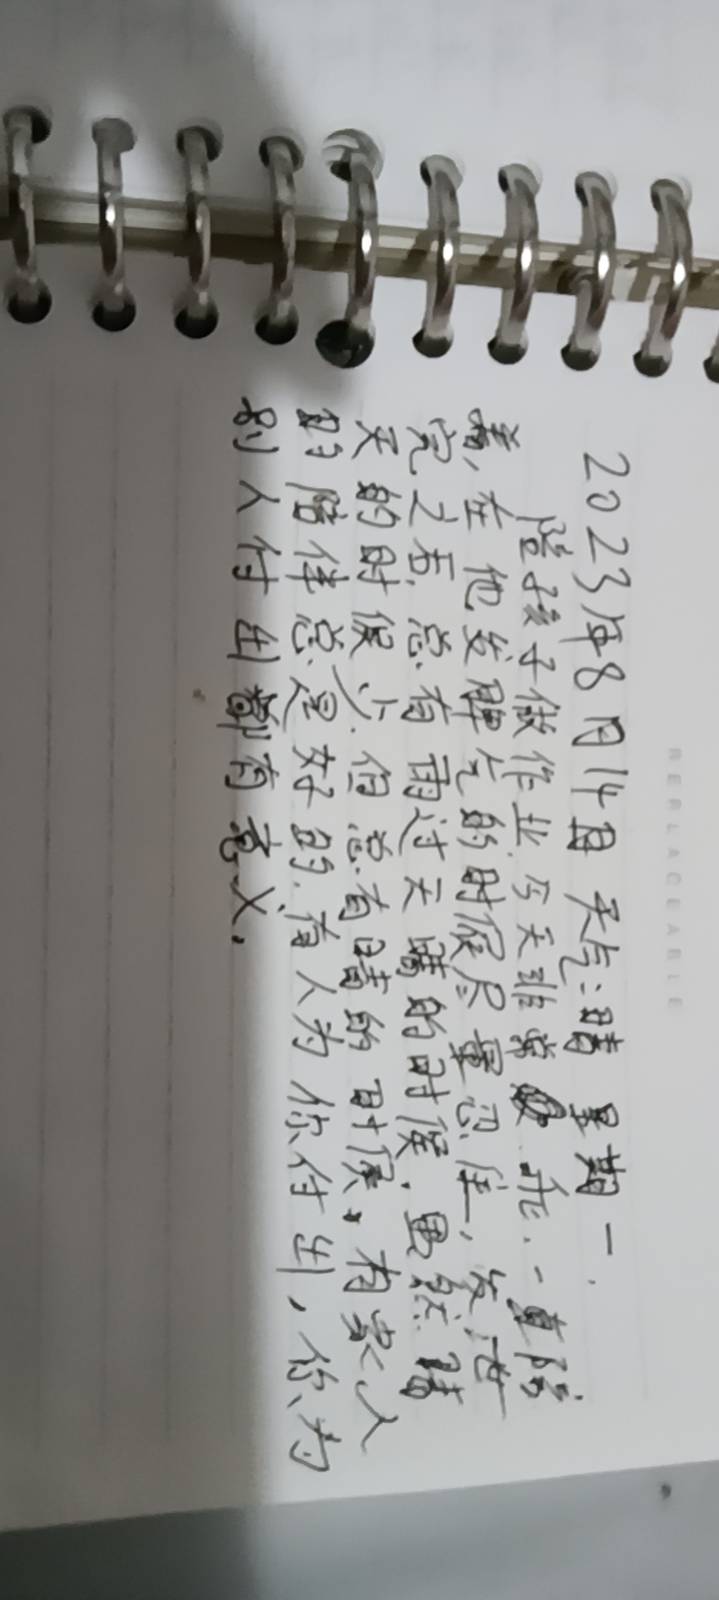 REPLACEABLE
2023年8月14日 天气:晴 星期一.
陪孩子做作业.今天非常 乖.一直陪
着,在他发脾气的时候尽量忍住,发泄
完之后.总有雨过天晴的时候.虽然晴
天的时候少.但总有晴的时候,有家人
的陪伴总是好的.有人为你付出,你为
别人付出都有意义.